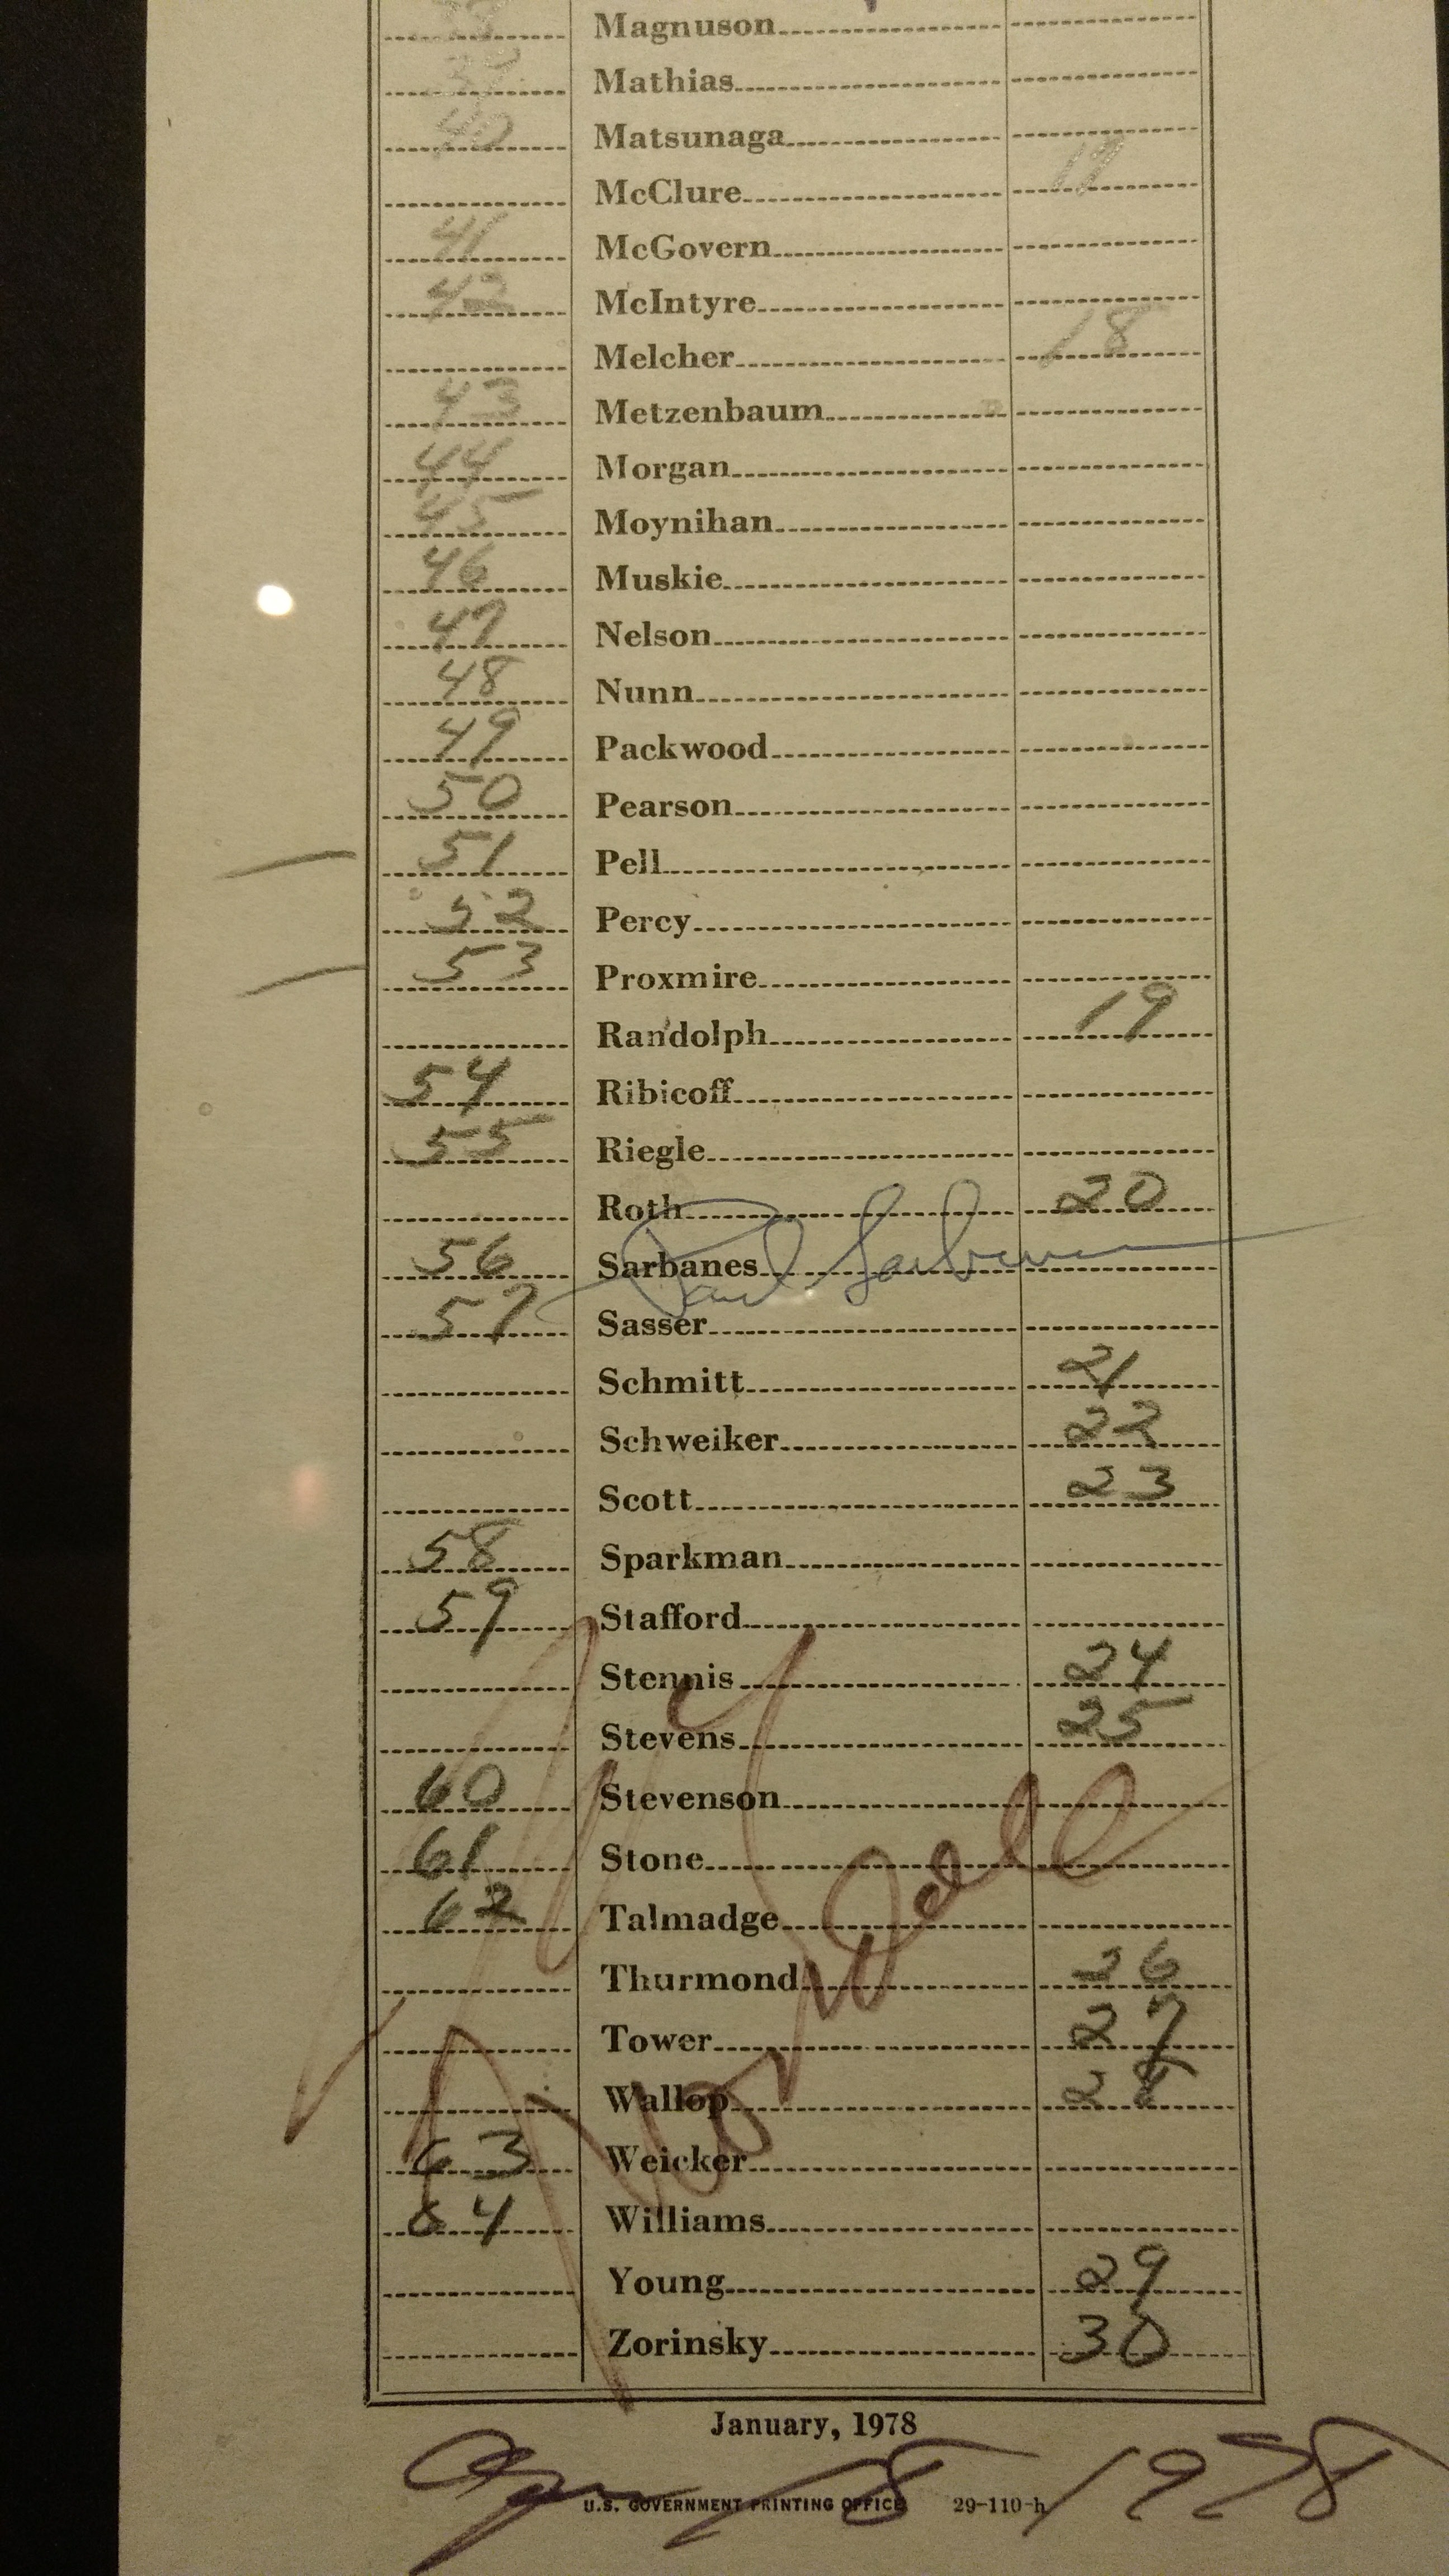 38 Magnuson
39 Mathias
40 Matsunaga
McClure 17
41 McGovern
42 McIntyre
Melcher 18
43 Metzenbaum
44 Morgan
45 Moynihan
46 Muskie
47 Nelson
48 Nunn
49 Packwood
50 Pearson
51 Pell
52 Percy
53 Proxmire
Randolph 19
54 Ribicoff
55 Riegle
Roth 20
56 Sarbanes Paul Sarbanes
57 Sasser
Schmitt 21
Schweiker 22
Scott 23
58 Sparkman
59 Stafford
Stennis 24
Stevens 25
60 Stevenson
61 Stone
62 Talmadge
Thurmond 26
Tower 27
Wallop 28
63 Weicker
64 Williams
Young 29
Zorinsky 30
January, 1978
1978
U.S. GOVERNMENT PRINTING OFFICE 29-110-h